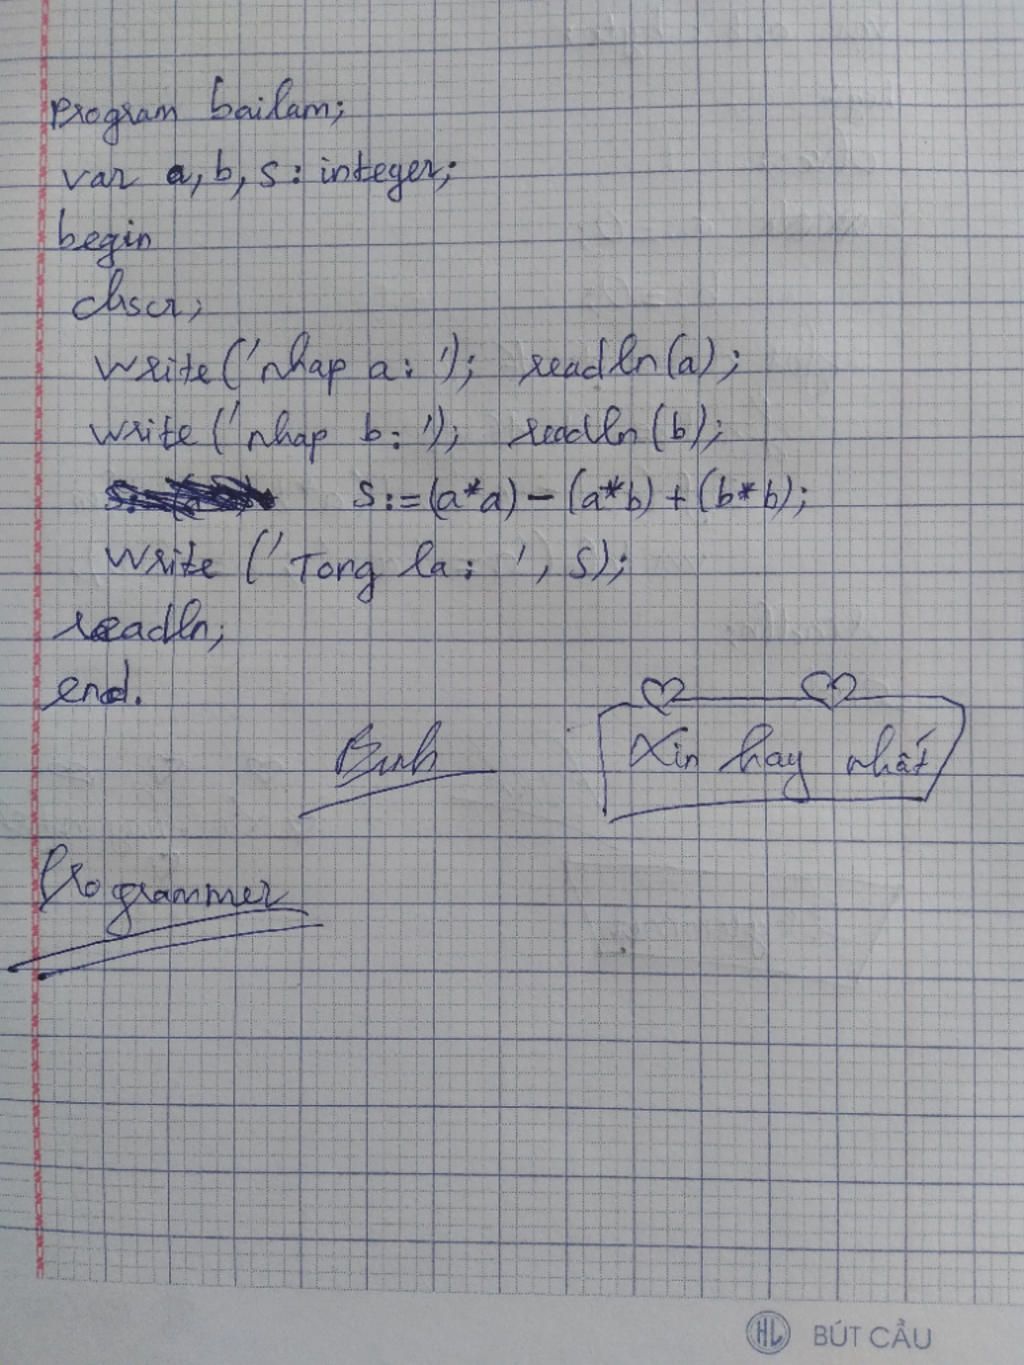 Program bailam;
var a, b, s: integer;
begin
clrscr;
write('nhap a: '); readln(a);
write('nhap b: '); readln(b);
s:=(a*a) - (a*b) + (b*b);
write ('Tong la: ', s);
readln;
end.
Binh
Xin hay nhất
Programmer
HL BÚT CẦU